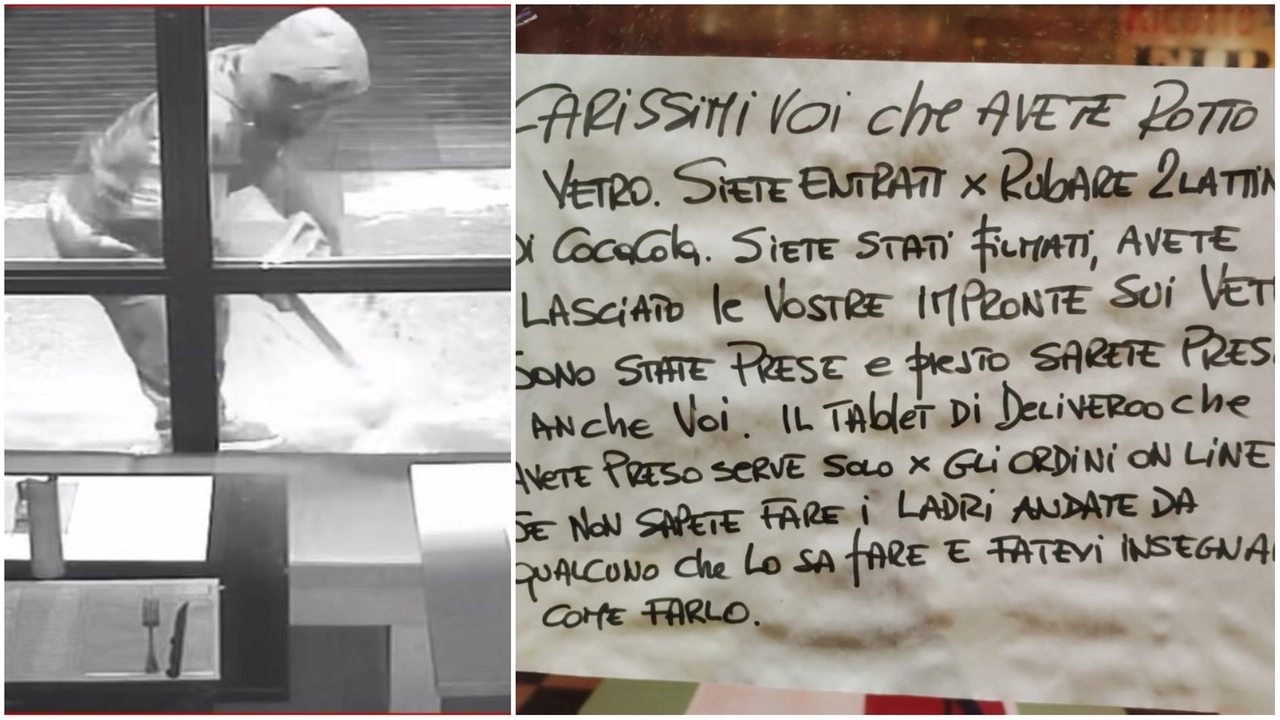 CARISSIMI VOI che AVETE ROTTO
VETRO. SIETE ENTRATI x RUBARE 2 LATTIN
DI CocaCola. SIETE STATI FILMATI, AVETE
LASCIATO le VOSTRE IMPRONTE SUI VET
SONO STATE PRESE e presto SARETE PRES
ANche VOI. IL TABLET DI DELIVEROO che
AVETE PRESO SERVE SOLO x GLI ORDINI ON LINE
SE NON SAPETE FARE i LADRI ANDATE DA
QUALCUNO che LO SA FARE E FATEVI INSEGNA
COME FARLO.